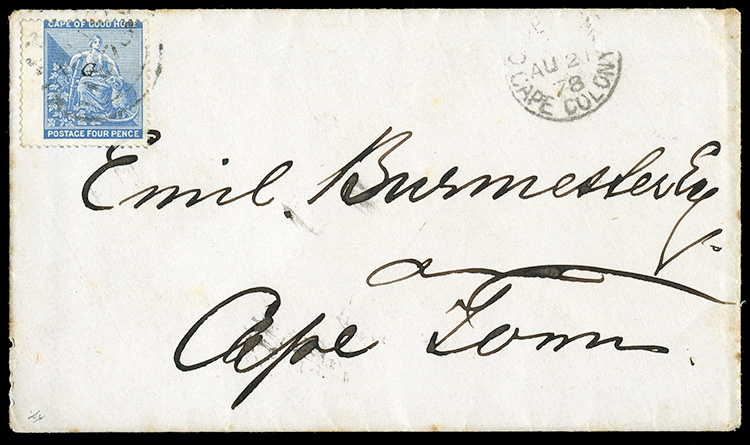 CAPE OF GOOD HOPE
G
POSTAGE FOUR PENCE
AU 21
78
CAPE COLONY
Emil Burmester Esq
Cape Town